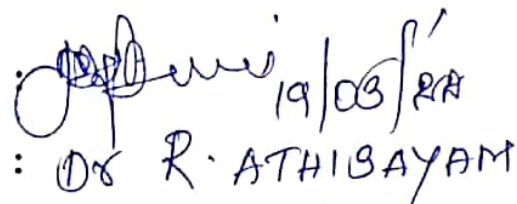 : 19/03/22
: Dr R. ATHIBAYAM